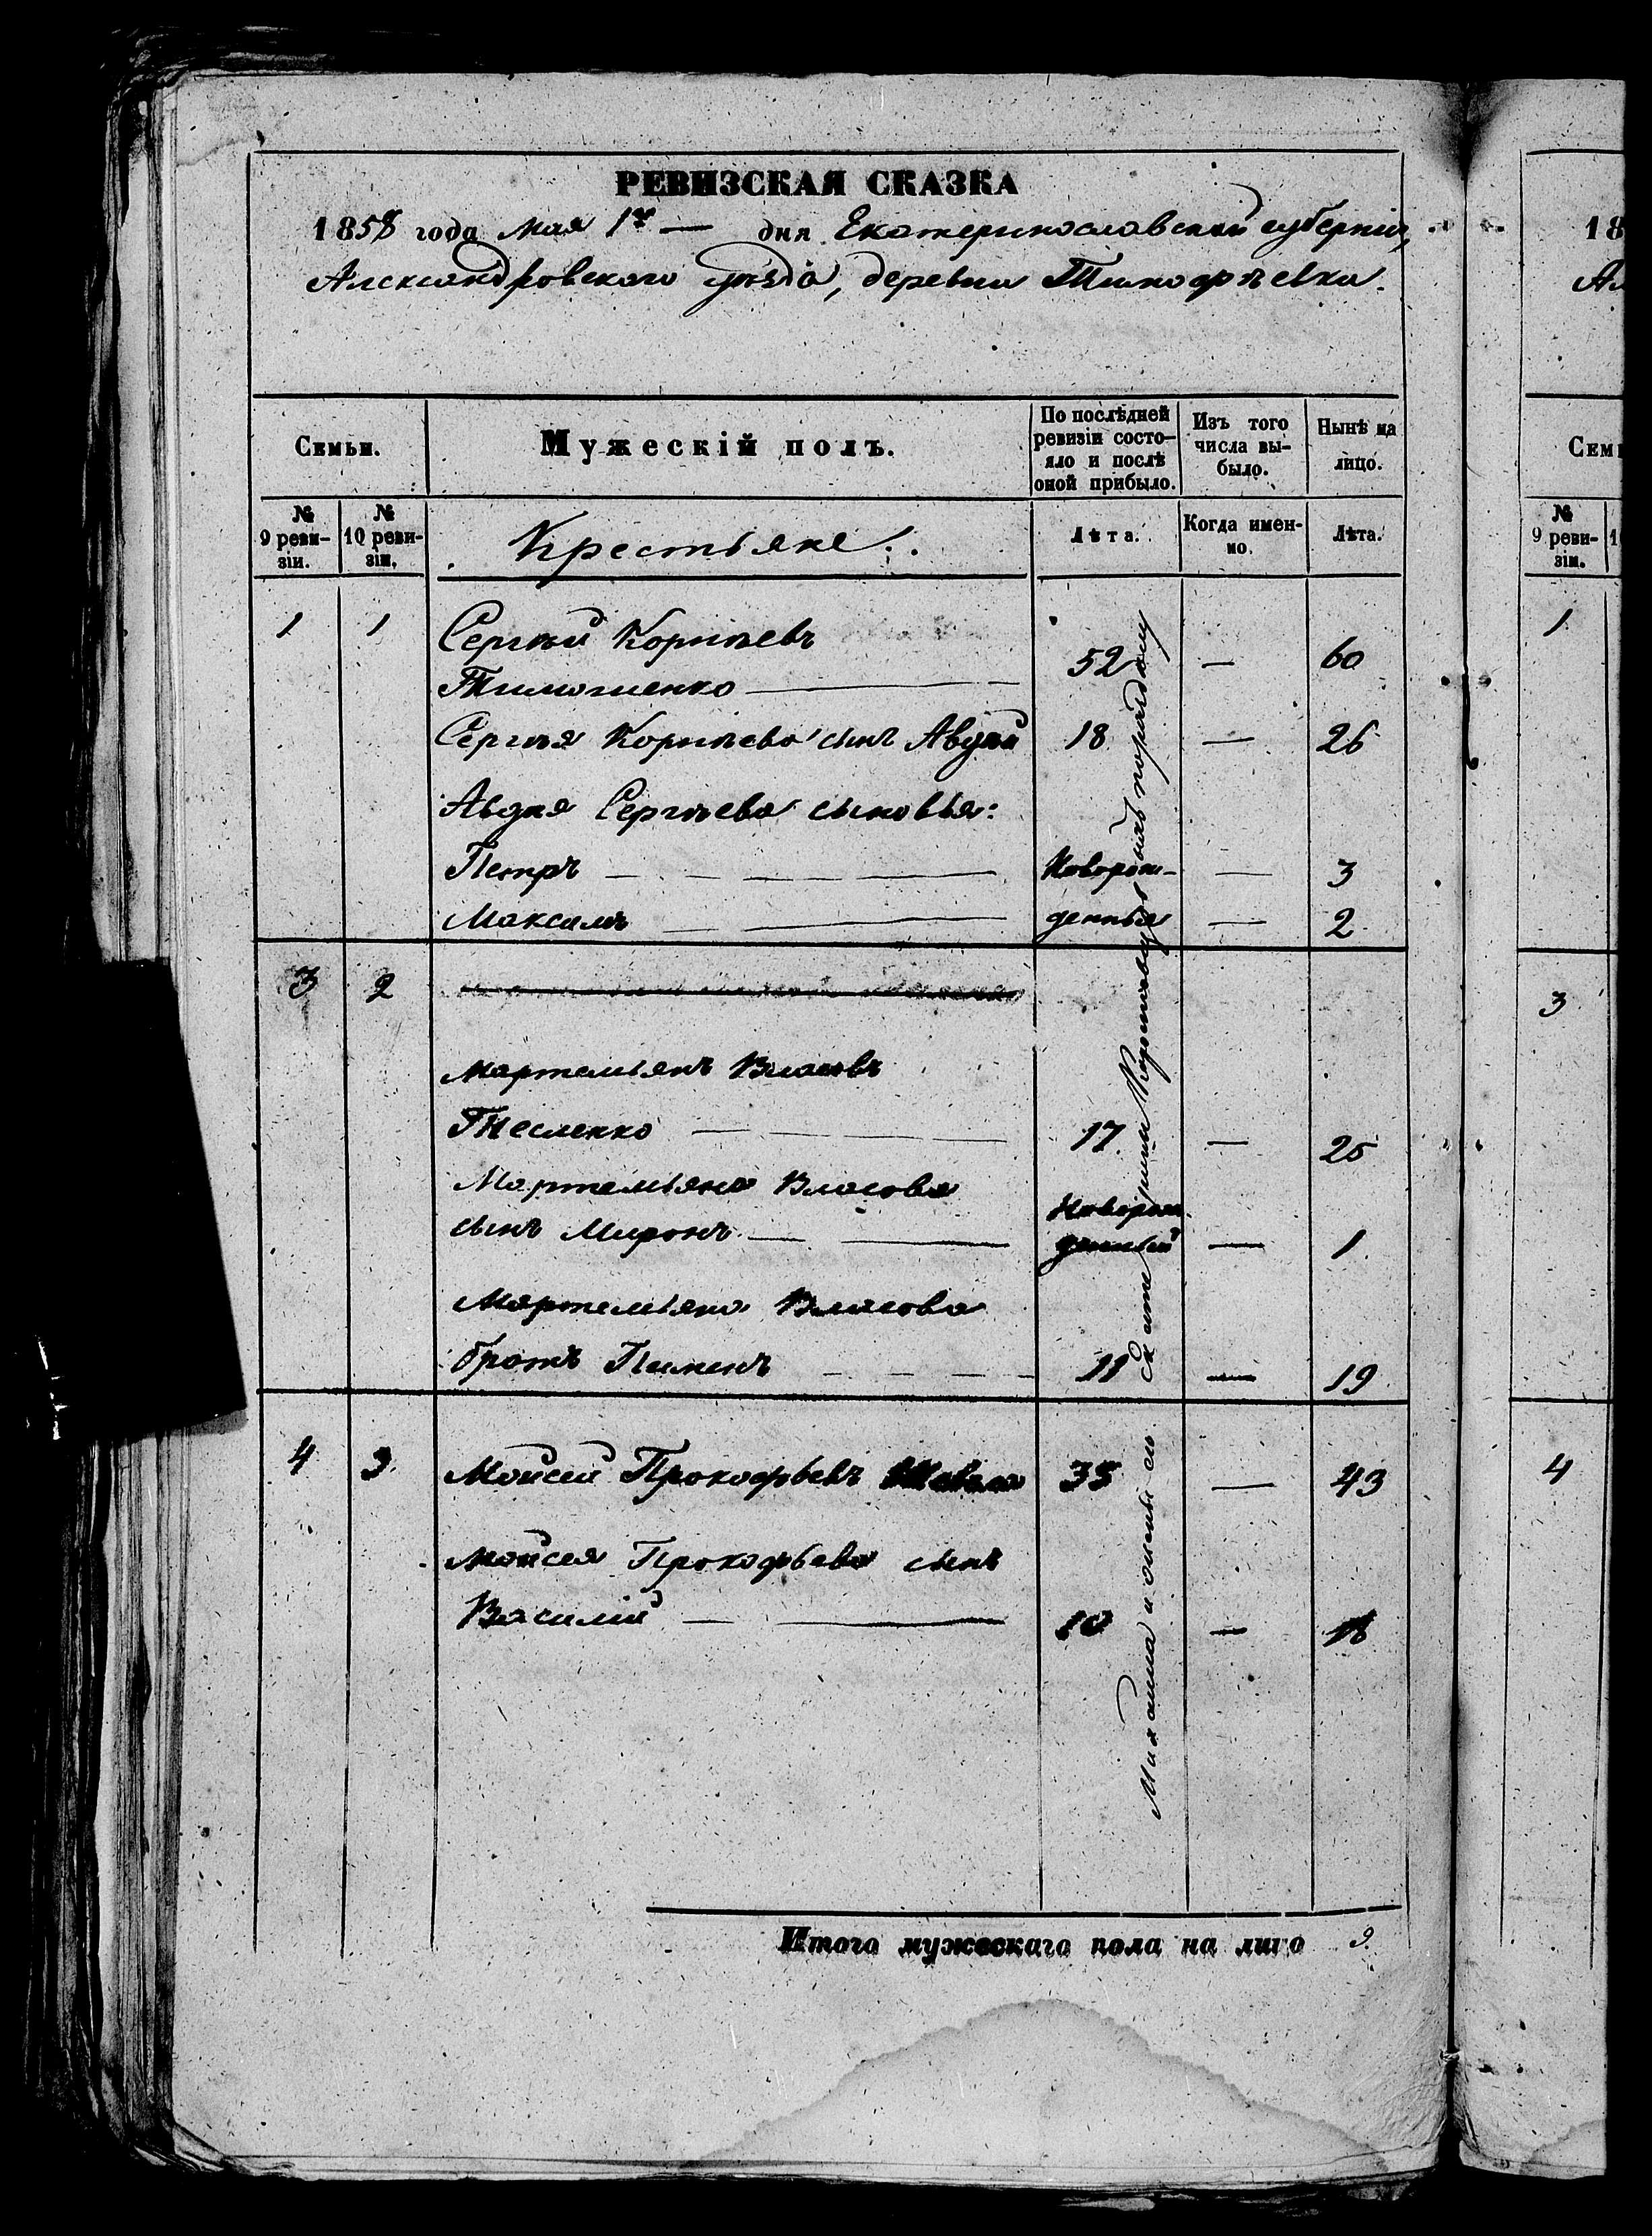 РЕВИЗСКАЯ СКАЗКА
1858 года мая 1го — дня Екатеринославской губерніи,
Александровскаго уѣзда, деревни Тимофѣевки.
Семьи.
Мужескій полъ.
По послѣдней ревизіи состояло и послѣ оной прибыло.
Изъ того числа выбыло.
Нынѣ на лицо.
№ 9 ревизіи.
№ 10 ревизіи.
Крестьяне.
Лѣта.
Когда именно.
Лѣта.
1 1 Сергѣй Корнѣевъ
Тимошенко — 52 — 60
Сергѣя Корнѣева сынъ Авдѣй 18 — 26
Авдѣя Сергѣева сыновья:
Петръ — Геворож- — 3
Максимъ — денные — 2
3 2
Мартемьянъ Власовъ
Тесленко — 17 — 25
Мартемьяна Власова
сынъ Миронъ — Новорож-
денный — 1
Мартемьяна Власова
братъ Пименъ — 11 — 19
4 3 Мойсей Прокофьевъ 35 — 43
Мойсея Прокофьева сынъ
Василій — 10 — 18
Итого мужескаго пола на лицо 9.
18
Ал
Семь
№ 9 ревизіи.
1
3
4